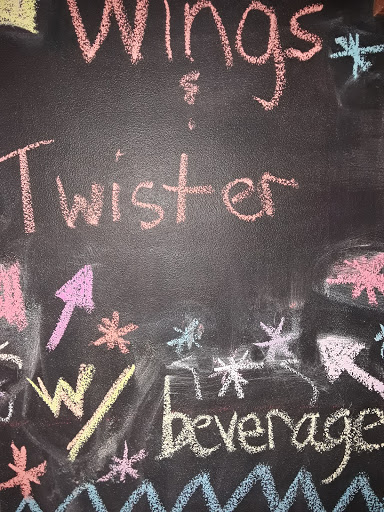 Wings
&
Twister
w/ beverage